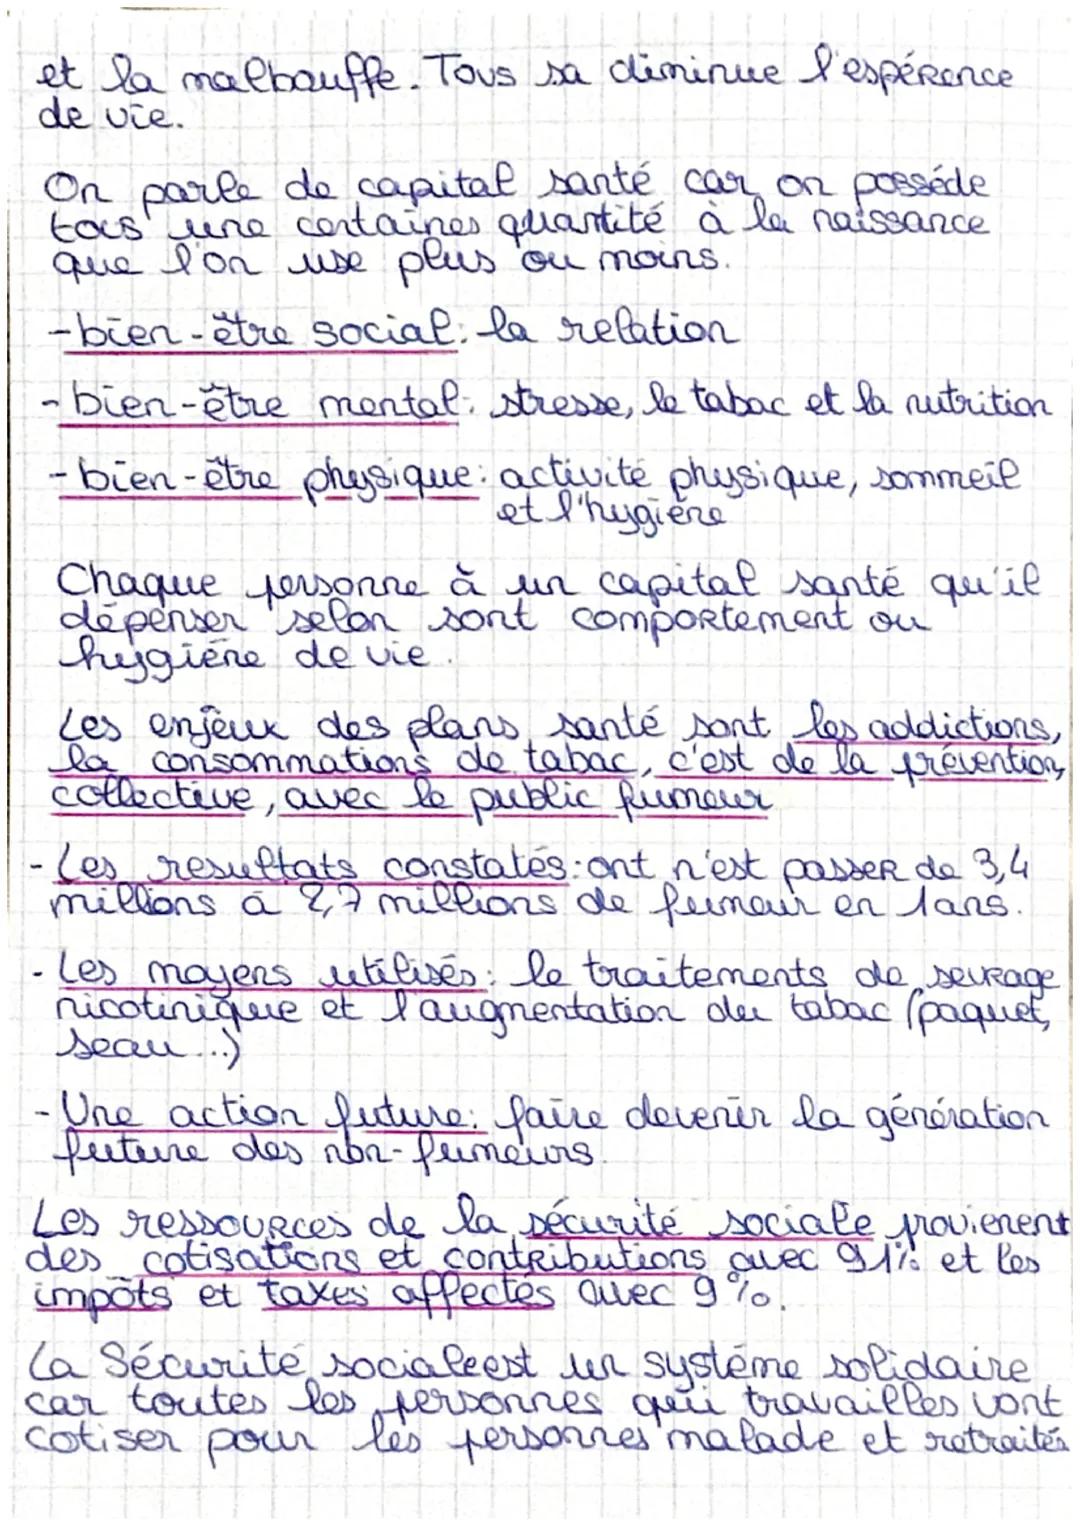 et la malbouffe. Tous sa diminue l'espérence
de vie.
On parle de capital santé car on posséde
tous une certaines quantité à la naissance
que l'on use plus ou moins.
-bien-être social: la relation
-bien-être mental: stresse, le tabac et la nutrition
-bien-être physique: activité physique, sommeil
et l'hygiène
Chaque personne à un capital santé qu'il
dépenser selon sont comportement ou
hygiène de vie.
Les enjeux des plans santé sont les addictions,
la consommations de tabac, c'est de la prévention,
collective, avec le public fumeur
-Les resultats constatés: ont n'est passer de 3,4
millions à 2,7 millions de fumeur en 1ans.
-Les moyens utilisés: le traitements de sevrage
nicotinique et l'augmentation du tabac (paquet,
seau...)
-Une action future: faire devenir la génération
future des non-fumeurs.
Les ressources de la sécurité sociale provienent
des cotisations et contributions avec 91% et les
impôts et taxes affectés avec 9%.
La Sécurité socialeest un système solidaire
car toutes les personnes qui travailles vont
cotiser pour les personnes malade et retraités